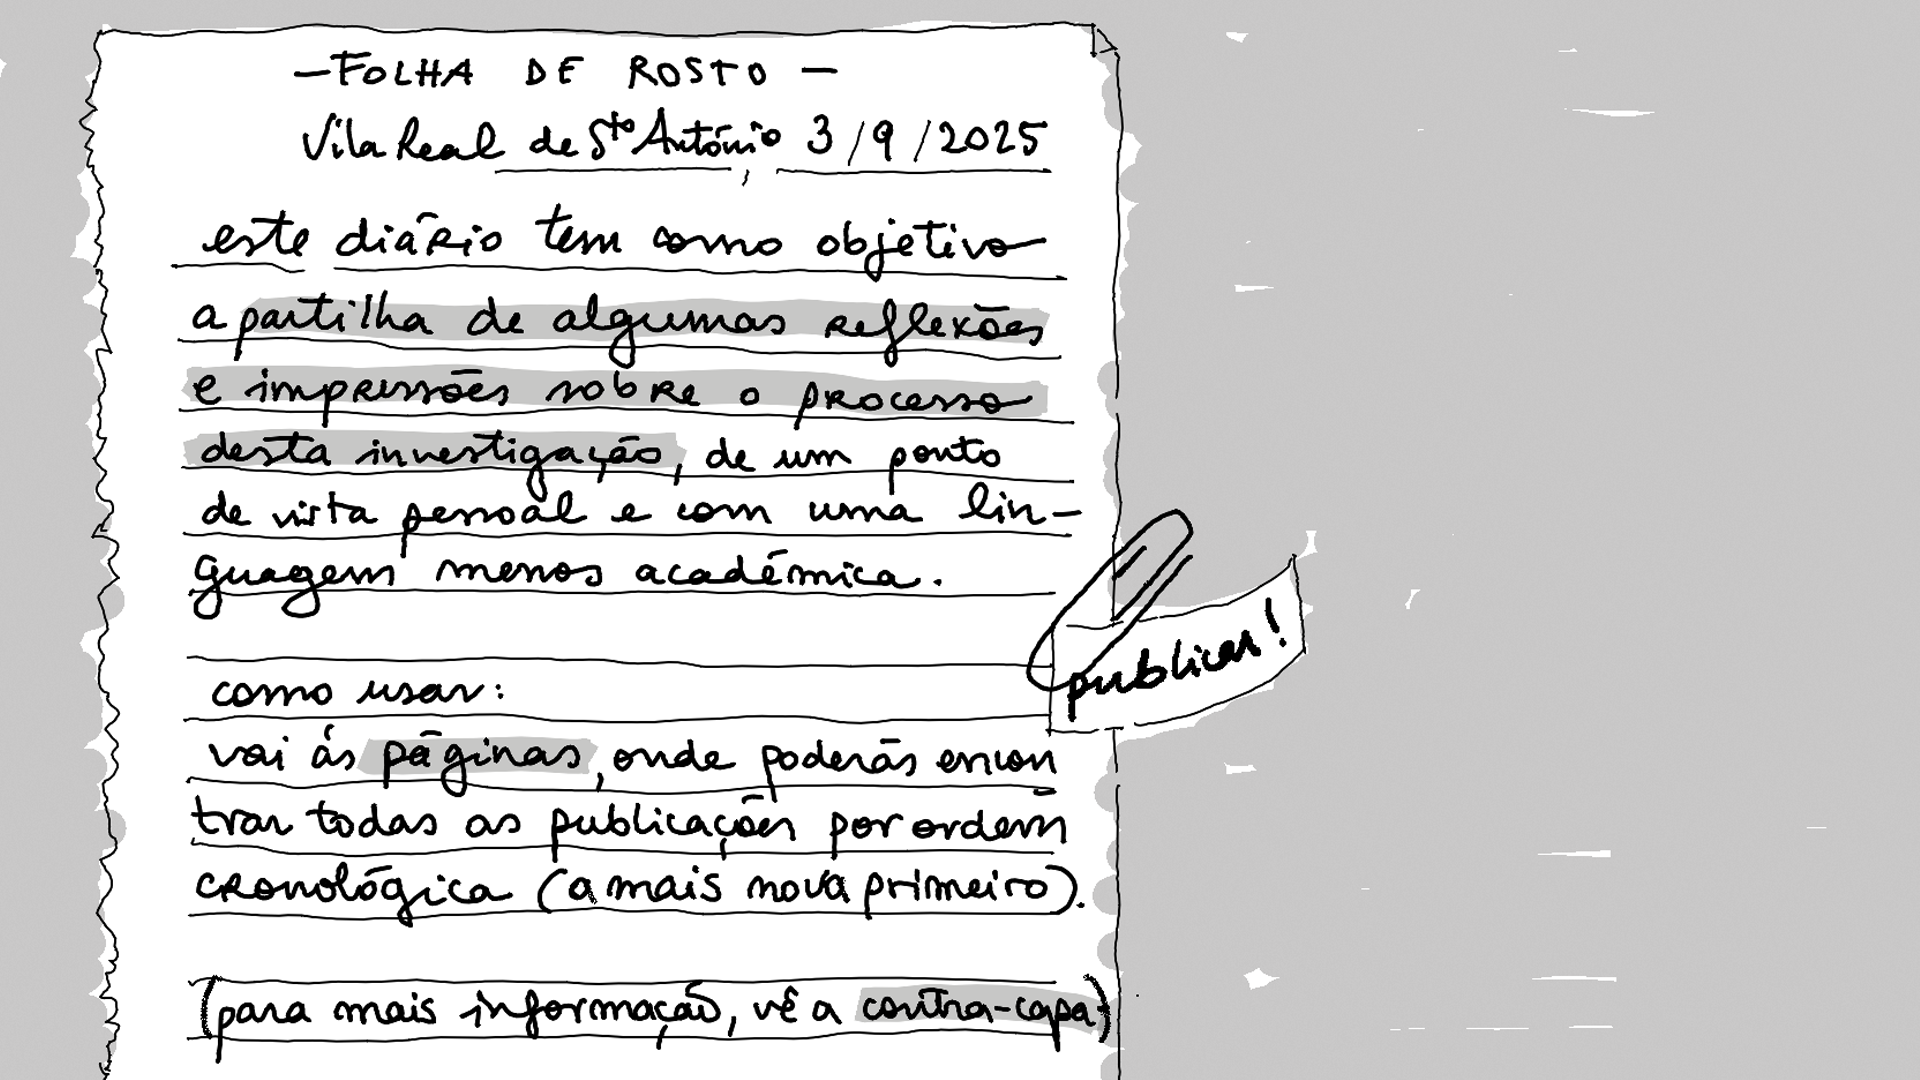 — FOLHA DE ROSTO —
Vila Real de Sto António 3/9/2025
este diário tem como objetivo
a partilha de algumas reflexões
e impressões sobre o processo
desta investigação, de um ponto
de vista pessoal e com uma lin-
guagem menos académica.
publicar!
como usar:
vai ás páginas, onde poderás encon
trar todas as publicações por ordem
cronológica (a mais nova primeiro).
(para mais informação, vê a contra-capa)